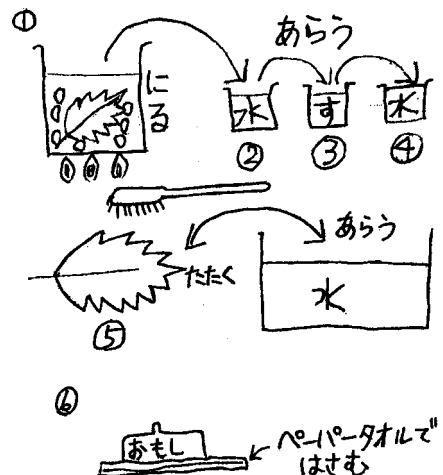 ①
にる
あらう
水
す
水
②
③
④
あらう
たたく
水
⑤
⑥
おもし
ペーパータオルで
はさむ